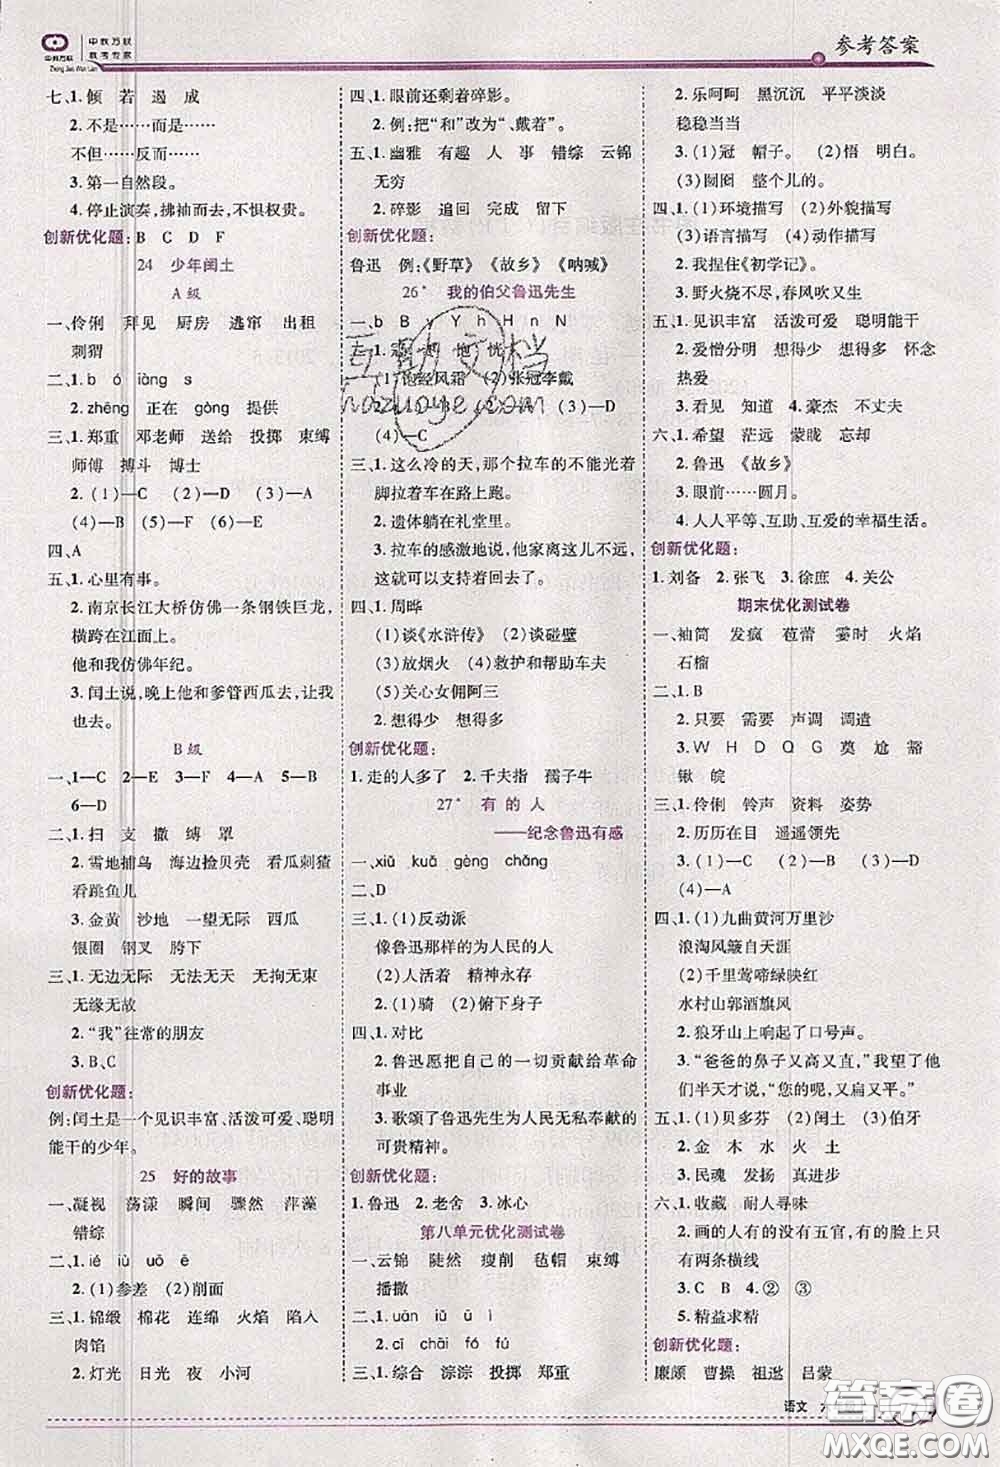 中教万联
Zhong Jiao Wan Lian
中教万联
教考专家
参考答案
七、1.倾 若 遏 成
2.不是……而是……
不但……反而……
3.第一自然段。
4.停止演奏,拂袖而去,不惧权贵。
创新优化题: B C D F
24 少年闰土
A 级
一、伶俐 拜见 厨房 逃窜 出租
刺猬
二、1. b ó iàng s
2. zhēng 正在 gòng 提供
三、1.郑重 邓老师 送给 投掷 束缚
师傅 搏斗 博士
2.(1)—C (2)—D (3)—A
(4)—B (5)—F (6)—E
四、A
五、1.心里有事。
2.南京长江大桥仿佛一条钢铁巨龙,
横跨在江面上。
他和我仿佛年纪。
3.闰土说,晚上他和爹管西瓜去,让我
也去。
B 级
一、1—C 2—E 3—F 4—A 5—B
6—D
二、1.扫 支 撒 缚 罩
2.雪地捕鸟 海边捡贝壳 看瓜刺猹
看跳鱼儿
3.金黄 沙地 一望无际 西瓜
银圈 钢叉 胯下
三、1.无边无际 无法无天 无拘无束
无缘无故
2.“我”往常的朋友
3.B、C
创新优化题:
例:闰土是一个见识丰富、活泼可爱、聪明
能干的少年。
25 好的故事
一、凝视 荡漾 瞬间 骤然 萍藻
错综
二、1. ié iù uǒ ē
2.(1)参差 (2)削面
三、1.锦缎 棉花 连绵 火焰 陷入
肉馅
2.灯光 日光 夜 小河
四、1.眼前还剩着碎影。
2.例:把“和”改为“、戴着”。
五、1.幽雅 有趣 人 事 错综 云锦
无穷
2.碎影 追回 完成 留下
创新优化题:
鲁迅 例:《野草》《故乡》《呐喊》
26* 我的伯父鲁迅先生
一、b B y Y h H n N
(1)饱经风霜 (2)张冠李戴
(3)—D
(4)—C
三、1.这么冷的天,那个拉车的不能光着
脚拉着车在路上跑。
2.遗体躺在礼堂里。
3.拉车的感激地说,他家离这儿不远,
这就可以支持着回去了。
四、1.周晔
(1)谈《水浒传》 (2)谈碰壁
(3)放烟火 (4)救护和帮助车夫
(5)关心女佣阿三
2.想得少 想得多
创新优化题:
1.走的人多了 2.千夫指 孺子牛
27* 有的人
——纪念鲁迅有感
一、xiǔ kuǎ gèng chǎng
二、D
三、1.(1)反动派
像鲁迅那样的为人民的人
(2)人活着 精神永存
2.(1)骑 (2)俯下身子
四、1.对比
2.鲁迅愿把自己的一切贡献给革命
事业
3.歌颂了鲁迅先生为人民无私奉献的
可贵精神。
创新优化题:
1.鲁迅 2.老舍 3.冰心
第八单元优化测试卷
一、云锦 陡然 瘦削 毡帽 束缚
播撒
二、1. uān iǔ ū ì
2. cī chāi fó fú
三、1.综合 淙淙 投掷 郑重
2.乐呵呵 黑沉沉 平平淡淡
稳稳当当
3.(1)冠 帽子。 (2)悟 明白。
(3)囫囵 整个儿的。
四、1.(1)环境描写 (2)外貌描写
(3)语言描写 (4)动作描写
2.我捏住《初学记》。
3.野火烧不尽,春风吹又生
五、1.见识丰富 活泼可爱 聪明能干
2.爱憎分明 想得少 想得多 怀念
热爱
3.看见 知道 4.豪杰 不丈夫
六、1.希望 茫远 蒙胧 忘却
2.鲁迅 《故乡》
3.眼前……圆月。
4.人人平等、互助、互爱的幸福生活。
创新优化题:
1.刘备 2.张飞 3.徐庶 4.关公
期末优化测试卷
一、袖筒 发疯 苞蕾 霎时 火焰
石榴
二、1.B
2.只要 需要 声调 调遣
3. W H D Q G 莫 尬 豁
锹 皖
三、1.伶俐 铃声 资料 姿势
2.历历在目 遥遥领先
3.(1)—C (2)—D (3)—B
(4)—A
四、1.(1)九曲黄河万里沙
浪淘风簸自天涯
(2)千里莺啼绿映红
水村山郭酒旗风
2.狼牙山上响起了口号声。
3.“爸爸的鼻子又高又直,”我望了他
们半天才说,“您的呢,又扁又平。”
五、1.(1)贝多芬 (2)闰土 (3)伯牙
2.金 木 水 火 土
3.民魂 发扬 真进步
六、1.收藏 耐人寻味
2.画的人没有五官,有的脸上只
有两条横线
3.C B 4.② ③
5.精益求精
创新优化题:
廉颇 曹操 祖逖 吕蒙
语文
答案圈
MXQE.COM